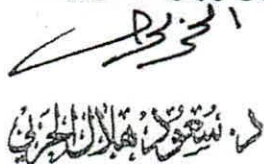 د. سعود هلال الحربي